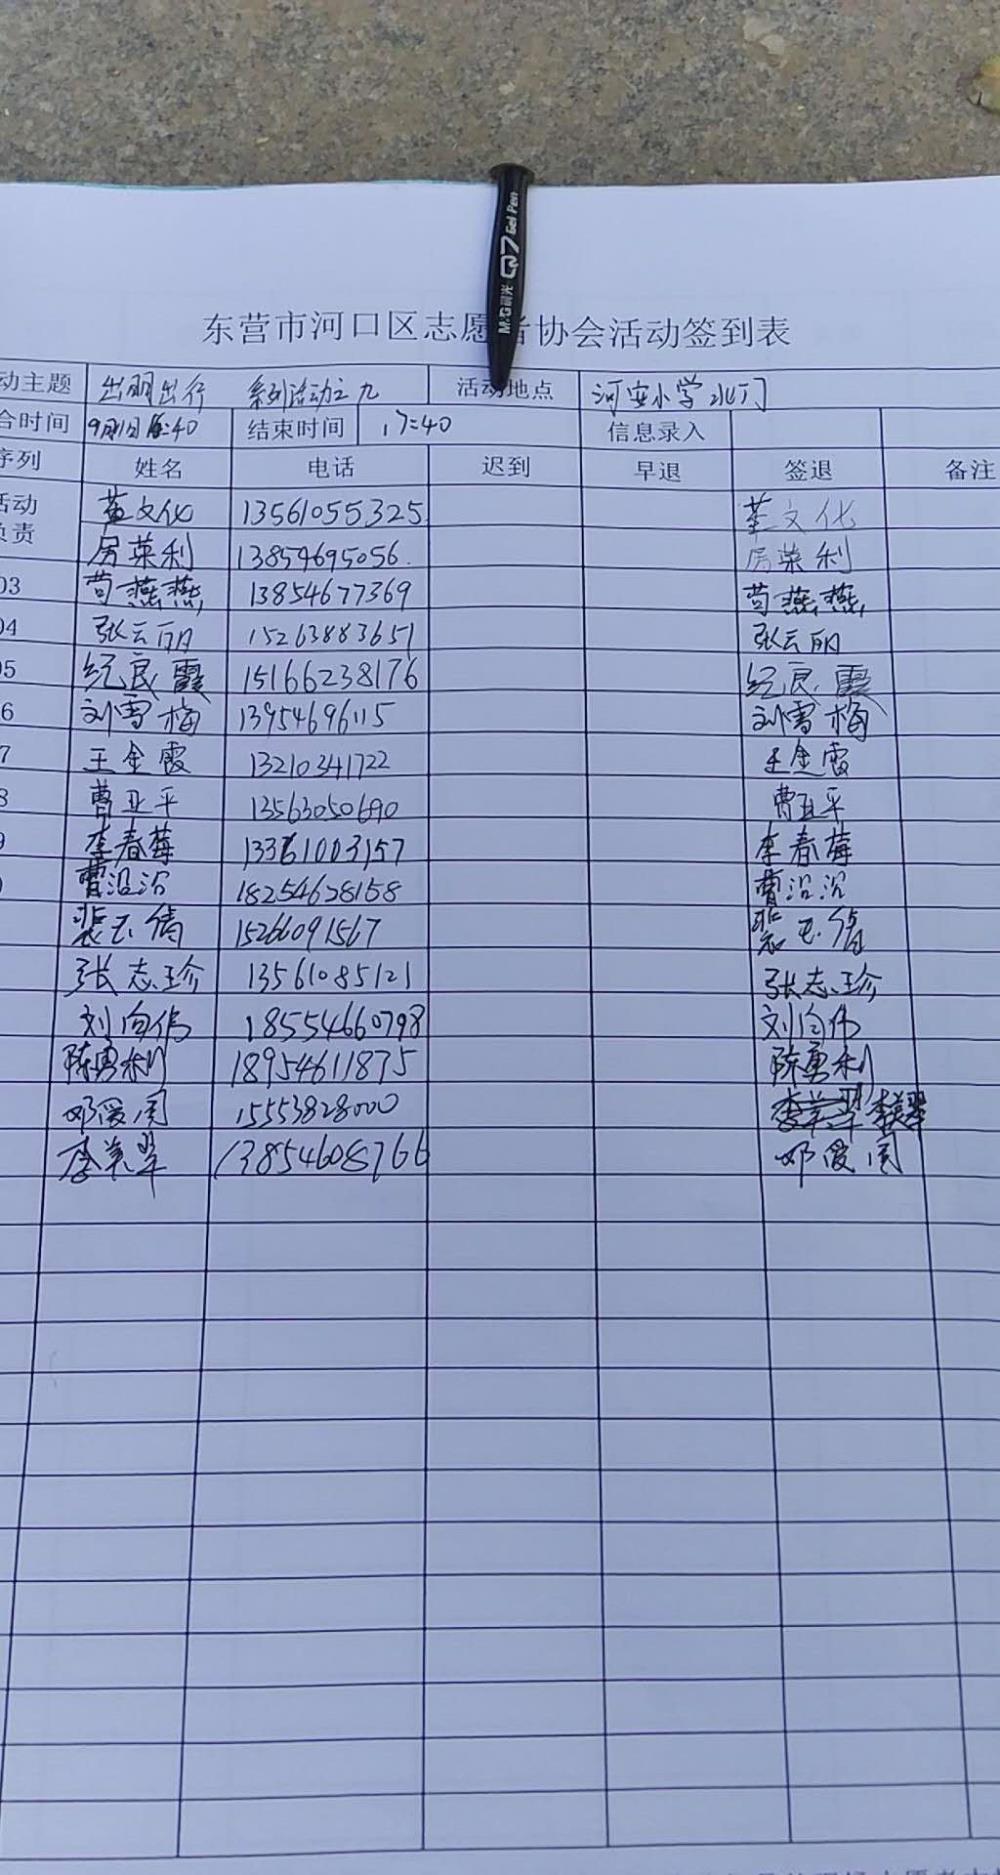 M&G晨光 Q7 Gel Pen
东营市河口区志愿者协会活动签到表
动主题 出行 系列活动之九 活动地点 河安小学北门
合时间 9月1日 :40 结束时间 17:40 信息录入
序列 姓名 电话 迟到 早退 签退 备注
活动 董文化 13561055325 董文化
负责 房荣利 13854695056. 房荣利
03 苟燕燕 13854677369 苟燕燕
04 张云丽 15263883651 张云丽
05 纪良霞 15166238176 纪良霞
6 刘雪梅 13954696115 刘雪梅
7 王金霞 13210341722 王金霞
8 曹亚平 13563050690 曹亚平
9 李春莓 13361003157 李春莓
曹沿沿 18254628158 曹沿沿
裴玉倩 15266091567 裴玉倩
张志珍 13561085121 张志珍
刘向伟 18554660798 刘向伟
陈勇利 18954611875 陈勇利
邓爱国 15553828000 李美翠 李美翠
李美翠 13854608766 邓爱国